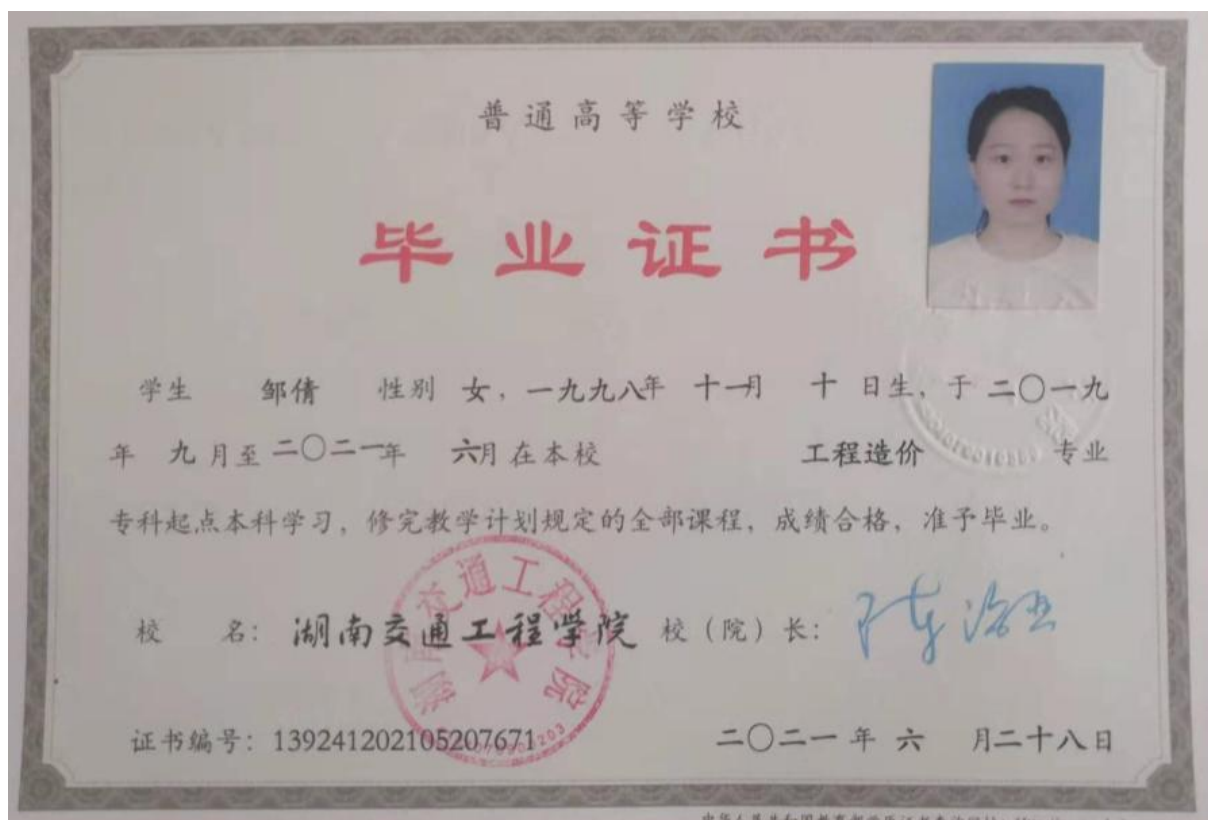 普通高等学校
毕业证书
学生 邹倩 性别 女，一九九八年 十一月 十 日生，于 二〇一九
年 九 月至 二〇二一年 六月在本校 工程造价 专业
专科起点本科学习，修完教学计划规定的全部课程，成绩合格，准予毕业。
校 名：湖南交通工程學院 校（院）长：
湖南交通工程学院
证书编号：139241202105207671 二〇二一 年 六 月二十八日